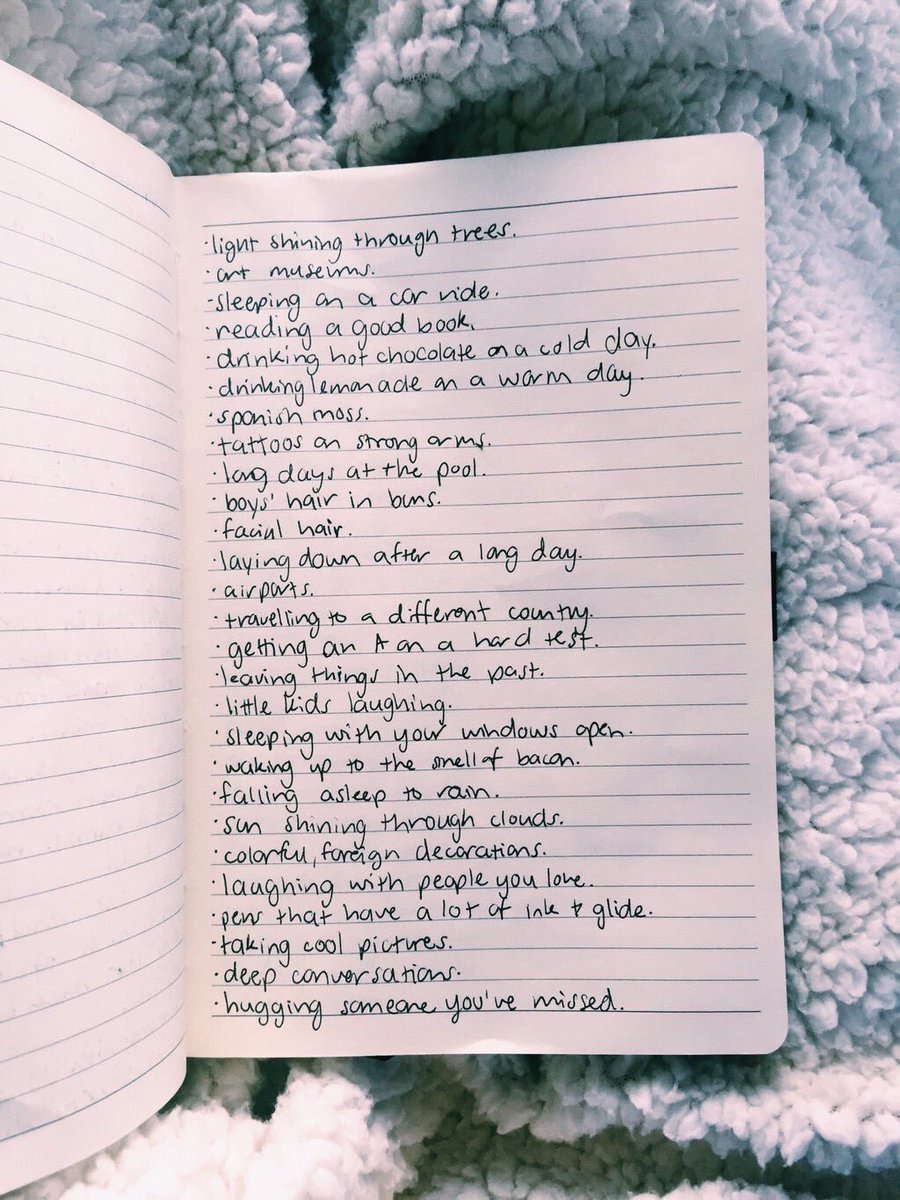 ·light shining through trees.
·art museums.
·sleeping on a car ride.
·reading a good book.
·drinking hot chocolate on a cold day.
·drinking lemonade on a warm day.
·spanish moss.
·tattoos on strong arms.
·long days at the pool.
·boys' hair in buns.
·facial hair.
·laying down after a long day.
·airports.
·travelling to a different country.
·getting an A on a hard test.
·leaving things in the past.
·little kids laughing.
·sleeping with your windows open.
·waking up to the smell of bacon.
·falling asleep to rain.
·sun shining through clouds.
·colorful, foreign decorations.
·laughing with people you love.
·pens that have a lot of ink & glide.
·taking cool pictures.
·deep conversations.
·hugging someone you've missed.